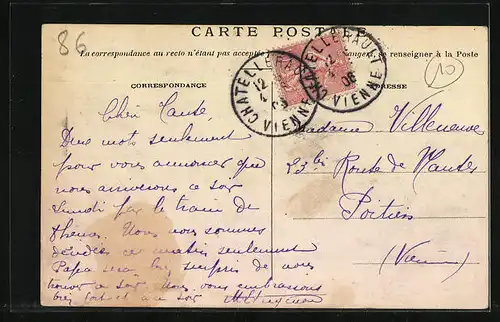 86
CARTE POSTALE
La correspondance au recto n'étant pas acceptée se renseigner à la Poste
10
CHATELLERAULT
12
4
VIENNE
CHATELLERAULT
12
4
06
VIENNE
CORRESPONDANCE
ADRESSE
Chère Tante
Deux mots seulement
pour vous annoncer que
nous arriverons ce soir
Lundi par le train de
8 heures. Nous nous sommes
décidés ce matin seulement
Papa sera bien surpris de nous
à soir. Nous vous embrassons
bien fort et à ce soir
Madame Villeneuve
23 bis Route de Nantes
Poitiers
(Vienne)